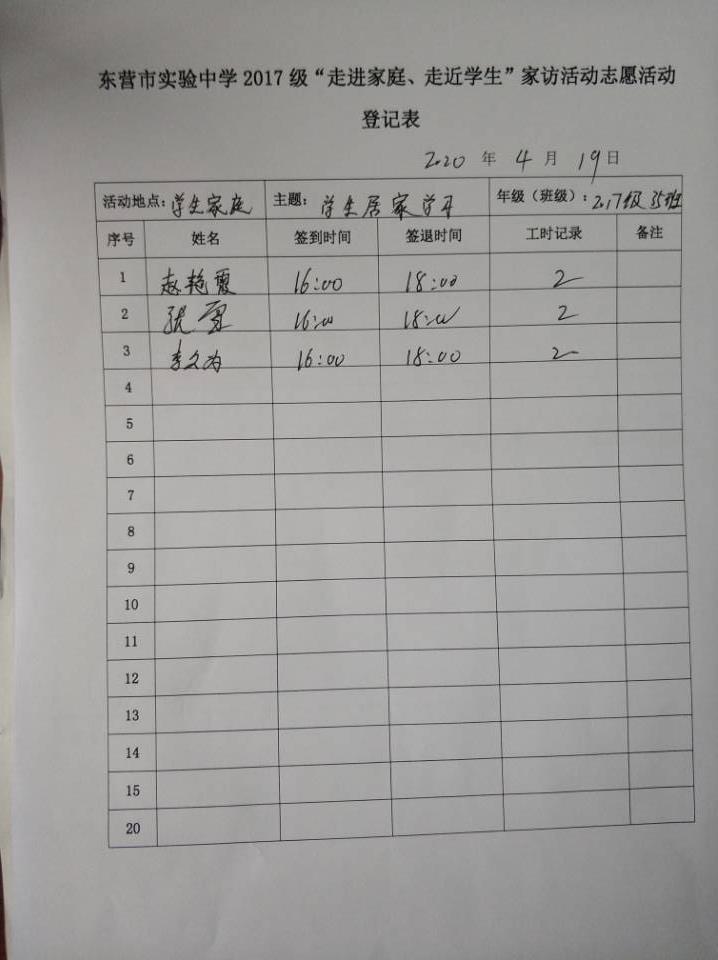 东营市实验中学2017级“走进家庭、走近学生”家访活动志愿活动
登记表
2020 年 4 月 19 日
活动地点：学生家庭 主题：学生居家学习 年级（班级）：2017级 班
序号 姓名 签到时间 签退时间 工时记录 备注
1 赵艳霞 16:00 18:00 2
2 16:00 18:00 2
3 李文为 16:00 18:00 2
4
5
6
7
8
9
10
11
12
13
14
15
20